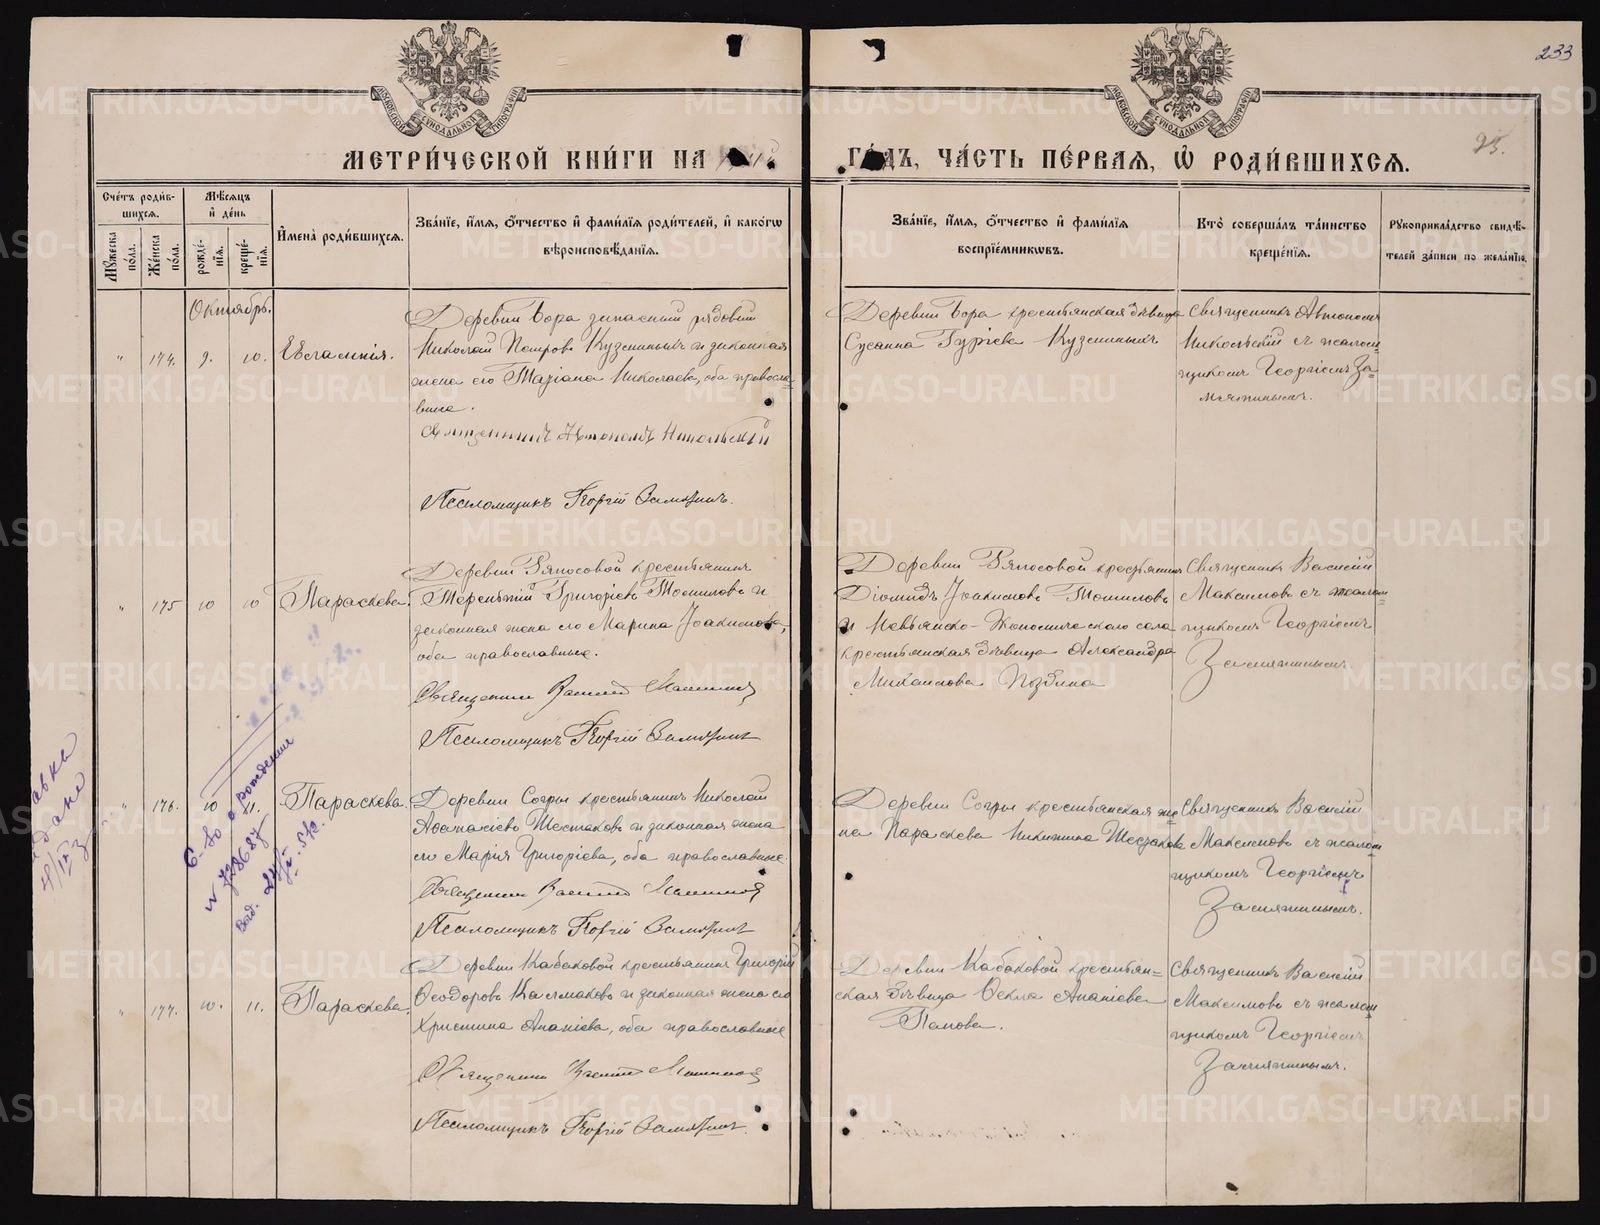 233
25.
МОСКОВСКОЙ СѴНОДАЛЬНОЙ ТИПОГРАФІИ
МОСКОВСКОЙ СѴНОДАЛЬНОЙ ТИПОГРАФІИ
МЕТРИ́ЧЕСКОЙ КНИ́ГИ НА
ГО́ДЪ, ЧА́СТЬ ПЕ́РВАЯ, Ѡ҆ РОДИ́ВШИХСЯ.
Сче́тъ роди́в-
шихся.
Мꙋ́жеска по́ла.
Же́нска по́ла.
Мѣ́сяцъ
и҆ де́нь
рожде́-
нїя.
креще́-
нїя.
И҆мена̀ роди́вшихся.
Зва́нїе, и҆́мя, ѻ҆́тчество и҆ фами́лїя роди́телей, и҆ како́гѡ
вѣроисповѣ́данїя.
Зва́нїе, и҆́мя, ѻ҆́тчество и҆ фами́лїя
воспрїе́мникѡвъ.
Кто̀ соверша́лъ та́инство
креще́нїя.
Рꙋкоприкла́дство свидѣ́-
телей за́писи по жела́нїю.
Октябрь.
" 174. 9. 10. Евлампія.
Деревни Бора запасный рядовой
Николай Петровъ Кузьминыхъ и законная
жена его Татіана Николаева, оба правосла-
вные.
Священникъ Автономъ Никольскій
Псаломщикъ Георгій Замятинъ.
Деревни Бора крестьянская дѣвица
Сусанна Гуріева Кузьминыхъ
Священникъ Автономъ
Никольскій съ псалом-
щикомъ Георгіемъ За-
мятинымъ.
" 175 10 10 Параскева.
Деревни Ряпосовой крестьянинъ
Терентій Григоріевъ Томиловъ и
законная жена его Марина Іоакимова,
оба православные.
Священникъ Василій Максимов
Псаломщикъ Георгій Замятинъ
Деревни Ряпосовой крестьянинъ
Діомидъ Іоакимовъ Томиловъ
и Невьянско-Экономическаго села
крестьянская дѣвица Александра
Михаилова
Священникъ Василій
Максимовъ съ псалом-
щикомъ Георгіемъ
Замятинымъ.
" 176. 10 11. Параскева.
Деревни Согры крестьянинъ Николай
Аѳанасіевъ Шестаковъ и законная жена
его Марія Григоріева, оба православные.
Священникъ Василій Максимов
Псаломщикъ Георгій Замятинъ
Деревни Согры крестьянская же-
на Параскева Никитина Шестакова
Священникъ Василій
Максимовъ съ псалом-
щикомъ Георгіемъ
Замятинымъ.
С-во о рождении
№ 728687
выд.
" 177. 10. 11. Параскева.
Деревни Кабаковой крестьянинъ Григорій
Ѳеодоровъ Калмаковъ и законная жена его
Христина Ананіева, оба православные
Священникъ Василій Максимов
Псаломщикъ Георгій Замятинъ.
Деревни Кабаковой крестьян-
ская дѣвица Ѳекла Ананіева
Панова.
Священникъ Василій
Максимовъ съ псалом-
щикомъ Георгіемъ
Замятинымъ.
METRIKI.GASO-URAL.RU